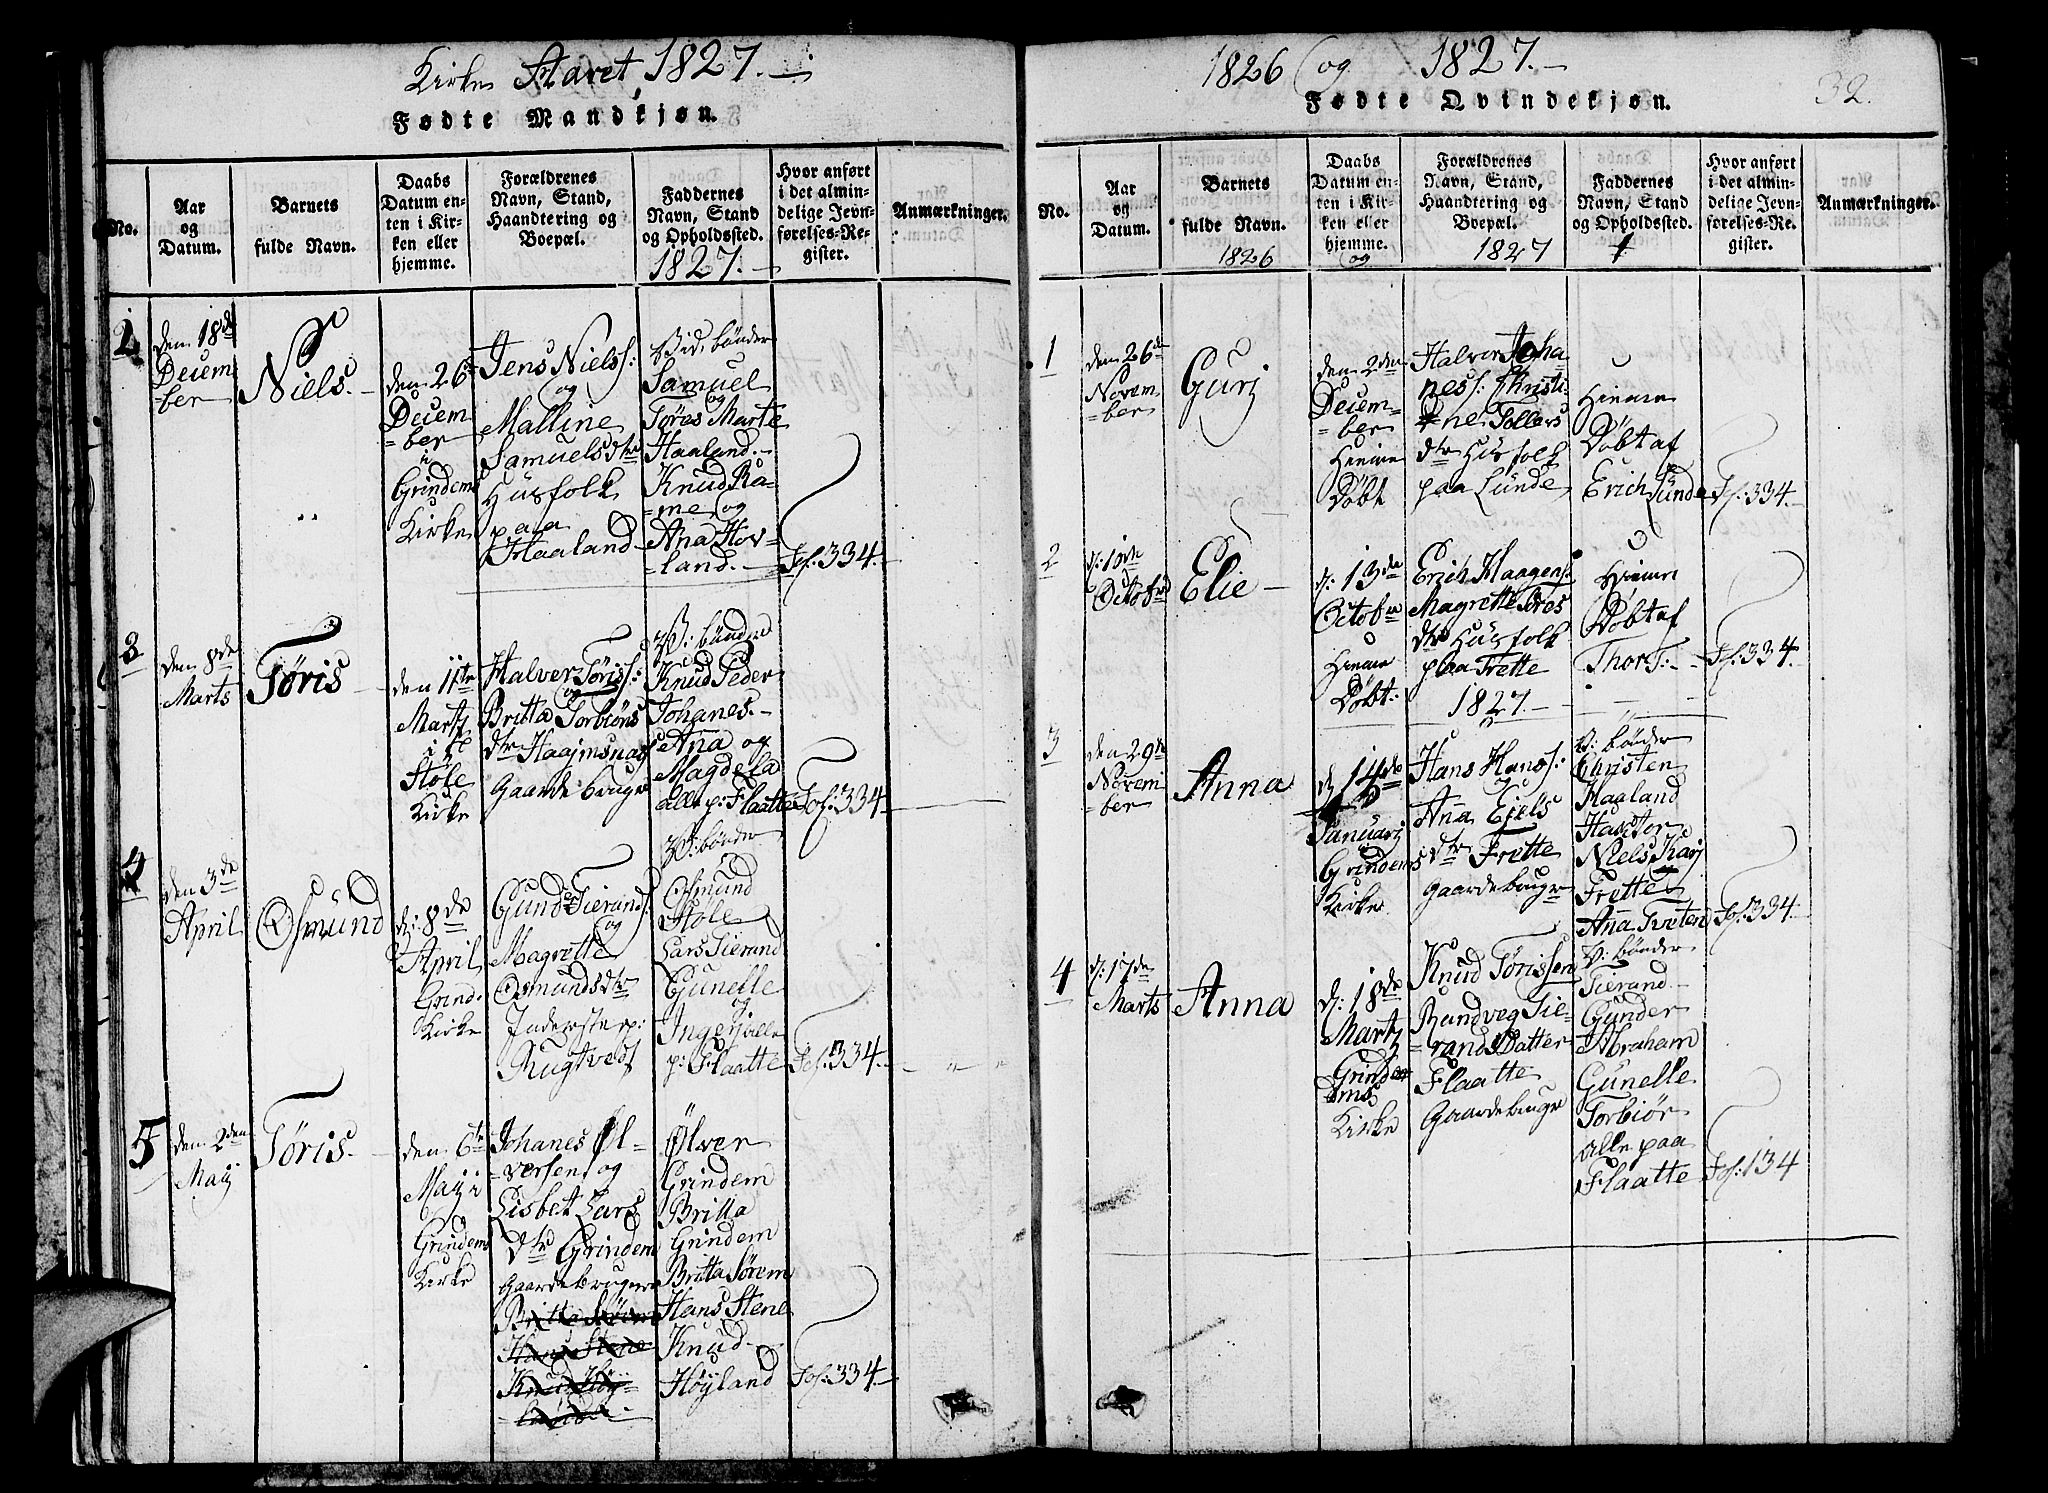 Kirke Aaret, 1827.
Fødte Mandkjøn.
No.
Aar
og
Datum.
Barnets
fulde Navn.
Daabs
Datum en-
ten i Kir-
ken eller
hjemme.
Forældrenes
Navn, Stand,
Haandtering og
Boepæl.
Faddernes
Navn, Stand
og Opholdssted.
1827.
Hvor anført
i det almin-
delige Jevn-
førelses-Re-
gister.
Anmærkninger.
2
den 18de
Decem
=ber
Niels.
den 26
Decem
=ber
i
Grindems
Kirke
Jens Niels:
og
Malline
Samuelsdtr
Husfolk
paa
Haaland
Bid. bønder
Samuel
og
Tøres Marte
Haaland.
Knud Ra-
me, og
Ana Hov-
=land.
Fol: 334.
3
den 8de
Marts
Tøris
den 11te
Martz
i
Støle
Kirke
Halver Tøriss:
og
Britta Torbiøns
dtr Haajmsnas
Gaardebruger
B: bønder
Knud Peder
Johanes.
Ana og
Magdela
alle p: Flaatte
Fol: 334.
4
den 3de
April
Osmund
d: 8de
April
Grind.
Kirke
Gunder Tierands:
og
Magrette
Osmundsdtr
Inderster p:
Rugtvedt
B: bønder
Osmund
Støle
Lars Tierand
Gunelle
og
Inger alle
p: Flaatte
Fol: 334.
5
den 2den
Maij
Tøris.
den 6te
Maij i
Grindems
Kirke
Johanes Øl-
=versen og
Lisbet Lars
Dtr Grindem
Gaardebrugere
Britta Sørem
Hans Stene
Knud Høy-
land
Ølver
Grindem
Britta
Grindem
Britta Sørem
Hans Stene
Knud
Høyland
Fol: 334.
1826 og 1827.
Fødte Qvindekjøn.
32.
No.
Aar
og
Datum.
Barnets
fulde Navn.
1826
Daabs
Datum en-
ten i Kir-
ken eller
hjemme.
og
Forældrenes
Navn, Stand,
Haandtering og
Boepæl.
1827
Faddernes
Navn, Stand
og Opholdssted.
Hvor anført
i det almin-
delige Jevn-
førelses-Re-
gister.
Anmærkninger.
1
den 26de
Novem
=ber
Gurj
den 2den
Decem-
=ber
Hieme
Døbt
Halver Joha-
ness: Christi-
=ne Tollers
dtr Husfolk
paa Lunde
Hieme
Døbt af
Erich Lunde
Fol: 334.
2
d: 10de
Octobr
Elie
d: 13de
Octobr
Hieme
Døbt.
Erich Haagens:
Magrette Tores
dtr Husfolk
paa Frette
Hieme
Døbt af
Thor T:
Fol: 334.
1827.
3
den 29de
Novem
=ber
Anna
d. 14de
Januarij
Grindems
Kirke
Hans Hans:
Ana Ejels
dtr Frette
Gaardebruger
B: bønder
Christen
Haaland
Hactor
Niels Karj
Frette
Ana Tveten
Fol: 334.
4
d: 17de
Marts
Anna
d: 18de
Martz
Grinde-
ms
Kirke
Knud Tørissen
Randveg Tie-
=rands Datter
Flaatte
Gaardebruger
B: bønder
Tierand
Gunder
Abraham
Gunelle
Torbiør
alle paa
Flaatte
Fol: 134